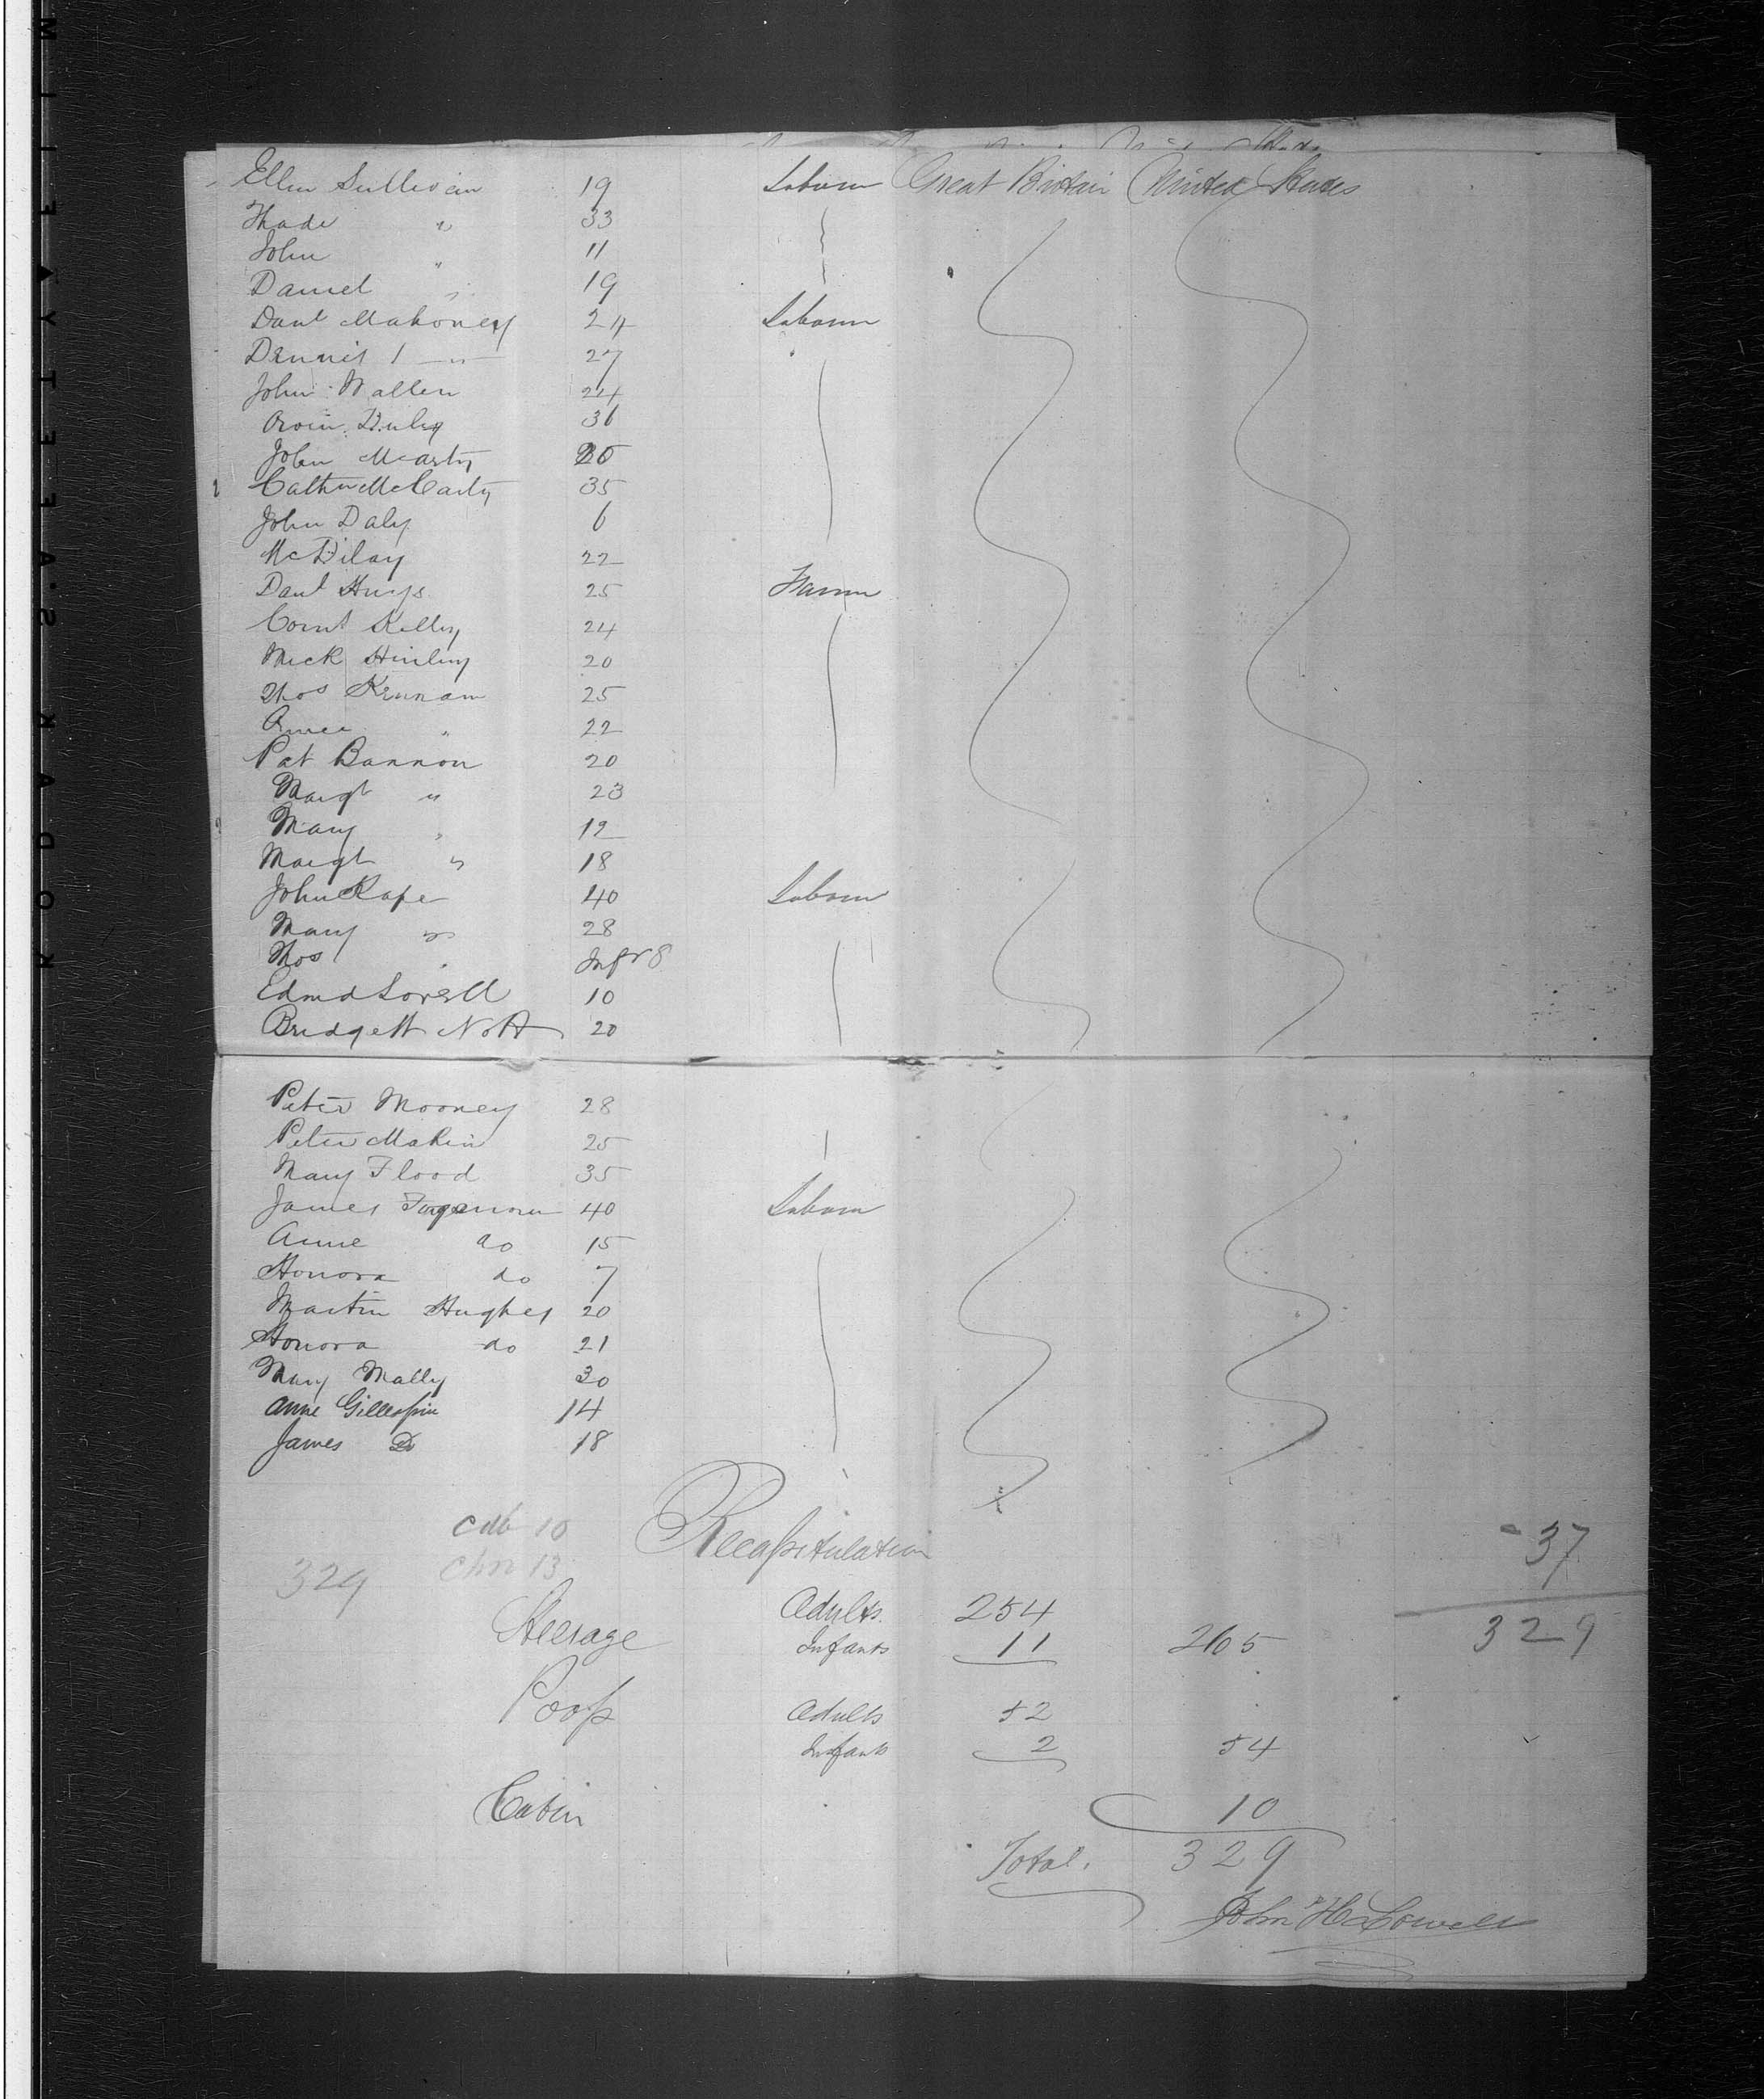 Ellen Sullivan 19 Laborer Great Britain United States
Thade " 33
John " 11
Daniel " 19
Danl Mahoney 24 Laborer
Dennis 1 — " — 27
John Wallen 24
Daly 36
John Mcarty 20
Cathn McCarty 35
John Daly 6
McDilay 22
Danl Huys 25 Farmer
Cornl Kelley 24
Mick Hinley 20
Thos Keenam 25
" 22
Pat Bannon 20
Margt " 23
Mary " 12
Margt " 18
John Rape 40 Laborer
Mary " 28
Thos " Infr 8
Edmd Lovell 10
Bridgett Nott 20
Peter Mooney 28
Peter Makin 25
Mary Flood 35
James 40 Laborer
Anne do 15
Honora do 7
Martin Hughes 20
Honora do 21
Mary Mally 30
Anne Gillespie 14
James Do 18
Cab 10 Recapitulation 37
329 Chn 13
Steerage Adults 254
Infants 11 265 329
Poop Adults 52
Infants 2 54
Cabin 10
Total. 329
John H Lowell
KODAK SAFETY FILM